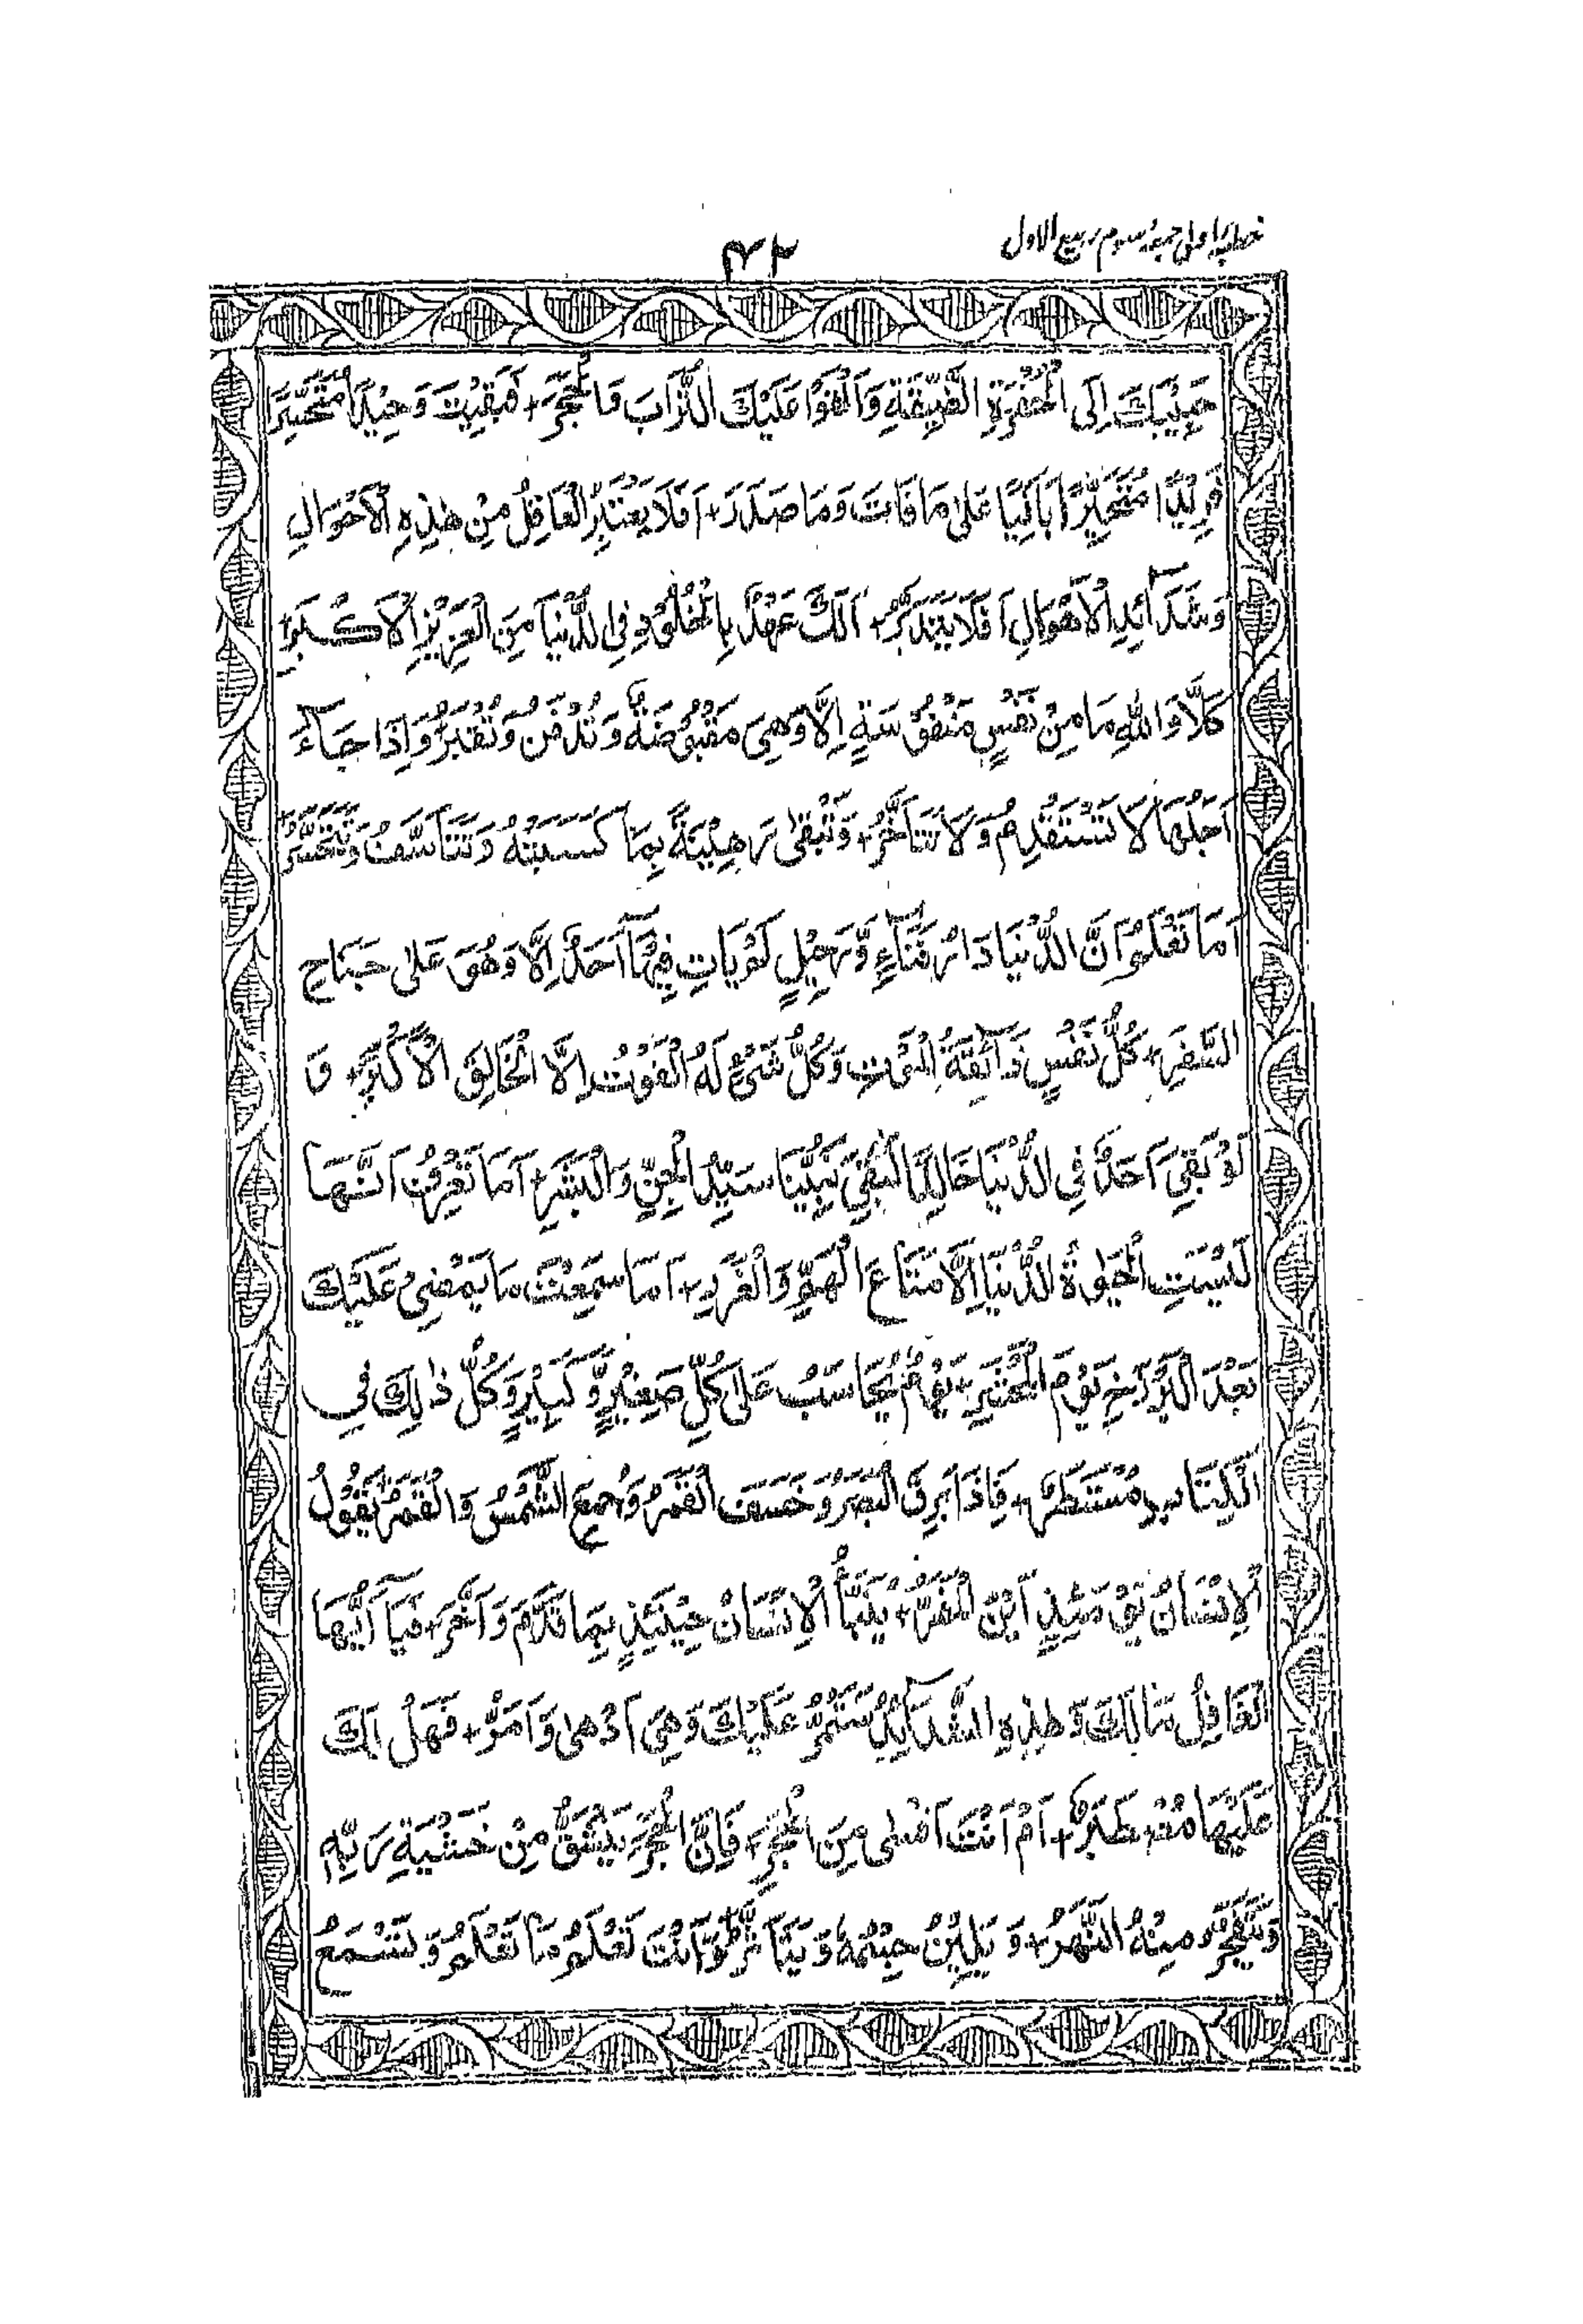 خطبہ اولی جمعہ سوم ربیع الاول
۴۲
حَبِيْبَكَ اِلَى الْحُفْرَةِ الضَّيِّقَةِ وَاَلْقَوْا عَلَيْكَ التُّرَابَ وَالْحَجَرَ + فَبَقِيْتَ وَحِيْدًا مُتَحَسِّرًا
فَرِيْدًا مُتَحَيِّرًا بَاكِيًا عَلٰى مَا فَاتَ وَمَا صَدَرَ + اَفَلَا يَعْتَبِرُ الْغَافِلُ مِنْ هٰذِهِ الْاَحْوَالِ
وَشَدَآئِدِ الْاَهْوَالِ اَفَلَا يَتَدَبَّرُ + اَلَكَ عَهْدٌ بِالْخُلُوْدِ فِى الدُّنْيَا مِنَ الْعَزِيْزِ الْاَكْبَرِ +
كَلَّا وَاللهِ مَا مِنْ نَفْسٍ مَنْفُوْسَةٍ اِلَّا وَهِىَ مَقْبُوْضَةٌ وَتُدْفَنُ وَتُقْبَرُ وَاِذَا جَآءَ
اَجَلُهَا لَا تَسْتَقْدِمُ وَلَا تَتَاَخَّرُ + وَتَبْقٰى رَهِيْنَةً بِمَا كَسَبَتْهُ وَتَتَاَسَّفُ وَتَتَحَسَّرُ
اَمَا تَعْلَمُ اَنَّ الدُّنْيَا دَارُ فَنَآءٍ وَّرَحِيْلٍ لَمْ يَاتِ فِيْهَا اَحَدٌ اِلَّا وَهُوَ عَلٰى جَنَاحِ
السَّفَرِ + كُلُّ نَفْسٍ ذَآئِقَةُ الْمَوْتِ وَكُلُّ شَىْءٍ لَهُ الْفَوْتُ اِلَّا الْخَالِقَ الْاَكْبَرَ + وَ
لَوْ بَقِىَ اَحَدٌ فِى الدُّنْيَا خَالِدًا لَبَقِىَ نَبِيُّنَا سَيِّدُ الْجِنِّ وَالْبَشَرِ + اَمَا تَعْرِفُ اَنَّهَا
لَيْسَتِ الْحَيٰوةُ الدُّنْيَا اِلَّا مَتَاعَ الْهَمِّ وَالْغَرَرِ + اَمَا سَمِعْتَ مَا يَمْضِىْ عَلَيْكَ
بَعْدَ الْبَرْزَخِ يَوْمَ الْمَحْشَرِ + يَوْمٌ يُحَاسَبُ عَلٰى كُلِّ صَغِيْرٍ وَّكَبِيْرٍ وَكُلُّ ذٰلِكَ فِى
الْكِتَابِ مُسْتَطَرٌ + فَاِذَا بَرِقَ الْبَصَرُ وَخَسَفَ الْقَمَرُ وَجُمِعَ الشَّمْسُ وَالْقَمَرُ يَقُوْلُ
الْاِنْسَانُ يَوْمَئِذٍ اَيْنَ الْمَفَرُّ + يُنَبَّأُ الْاِنْسَانُ حِيْنَئِذٍ بِمَا قَدَّمَ وَاَخَّرَ + فَيَآ اَيُّهَا
الْغَافِلُ مَا لَكَ وَهٰذِهِ الشَّدَآئِدُ سَتَمُرُّ عَلَيْكَ وَهِىَ اَدْهٰى وَاَمَرُّ + فَهَلْ لَكَ
عَلَيْهَا مُصْطَبَرٌ + اَمْ اَنْتَ اَقْسٰى مِنَ الْحَجَرِ + فَاِنَّ الْحَجَرَ يَنْشَقُّ مِنْ خَشْيَةِ رَبِّهِ
وَيَتَفَجَّرُ مِنْهُ النَّهَرُ + وَيَلِيْنُ جِسْمُهُ وَيَتَاَثَّرُ + وَاَنْتَ تَعْلَمُ مَا تَعْلَمُ وَتَسْمَعُ